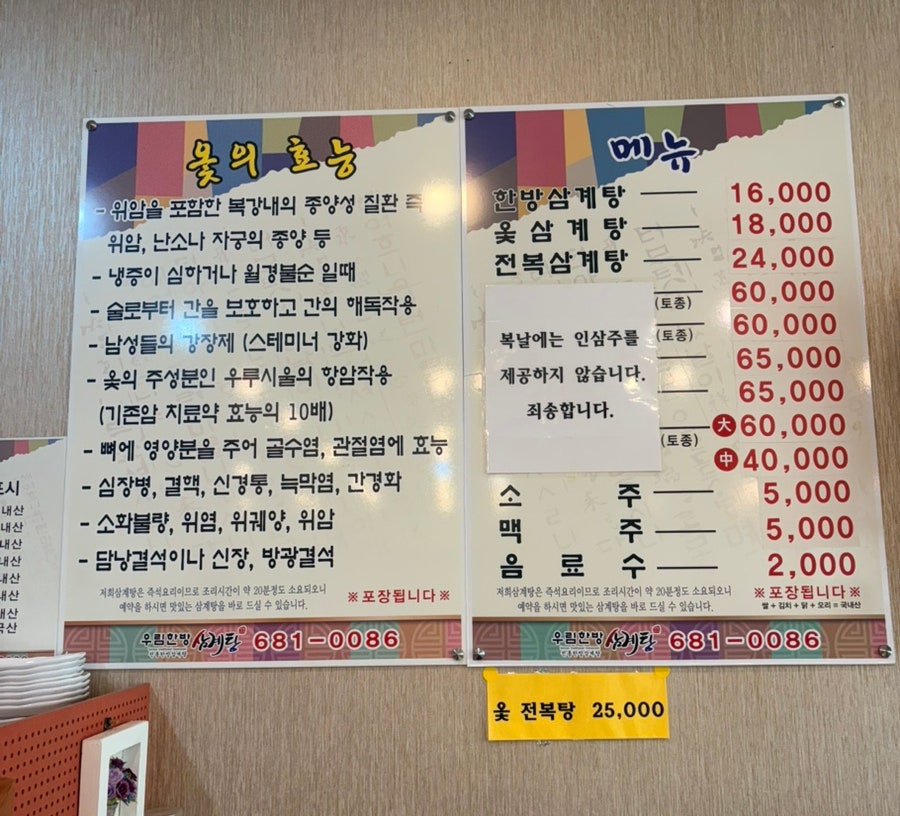 표시
내산
내산
내산
내산
내산
내산
국산
옻의 효능
- 위암을 포함한 복강내의 종양성 질환 즉
위암, 난소나 자궁의 종양 등
- 냉증이 심하거나 월경불순 일때
- 술로부터 간을 보호하고 간의 해독작용
- 남성들의 강장제 (스테미너 강화)
- 옻의 주성분인 우루시울의 항암작용
(기존암 치료약 효능의 10배)
- 뼈에 영양분을 주어 골수염, 관절염에 효능
- 심장병, 결핵, 신경통, 늑막염, 간경화
- 소화불량, 위염, 위궤양, 위암
- 담낭결석이나 신장, 방광결석
저희삼계탕은 즉석요리이므로 조리시간이 약 20분정도 소요되오니
예약을 하시면 맛있는 삼계탕을 바로 드실 수 있습니다.
※포장됩니다※
우림한방 삼계탕 681-0086
메뉴
한방삼계탕 16,000
옻삼계탕 18,000
전복삼계탕 24,000
(토종) 60,000
(토종) 60,000
65,000
65,000
大 60,000
(토종) 中 40,000
소주 5,000
맥주 5,000
음료수 2,000
복날에는 인삼주를
제공하지 않습니다.
죄송합니다.
저희삼계탕은 즉석요리이므로 조리시간이 약 20분정도 소요되오니
예약을 하시면 맛있는 삼계탕을 바로 드실 수 있습니다.
※포장됩니다※
쌀 + 김치 + 닭 + 오리 = 국내산
우림한방 삼계탕 681-0086
옻 전복탕 25,000